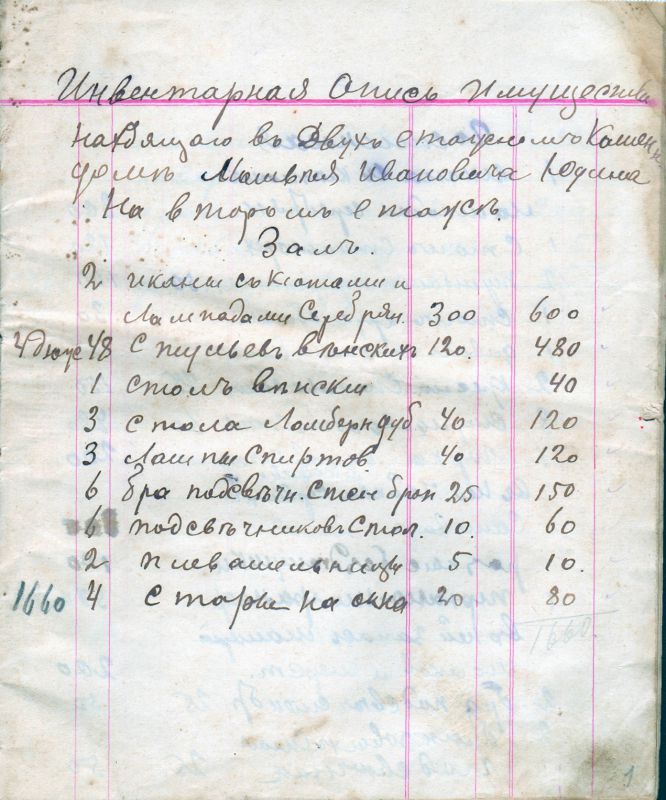 Инвентарная Опись Имущества
находящаго въ Двухъ етажномъ Камен
доме Матвея Ивановича Юдина
На второмъ етаже.
Залъ.
2 иконы съ Киотами и
Лампадами Серебрян. 300 600
4 дюж 48 Стульевъ вѣнскихъ 120. 480
1 столъ вѣнски 40
3 стола Ломберн дуб 40 120
3 Лампы Спиртов 40 120
6 бра подсвѣчн. Стен брон 25 150
6 подсвѣчниковъ Стол. 10. 60
2 плевательницы 5 10.
1660 4 сторы на окна 20 80
1660
1